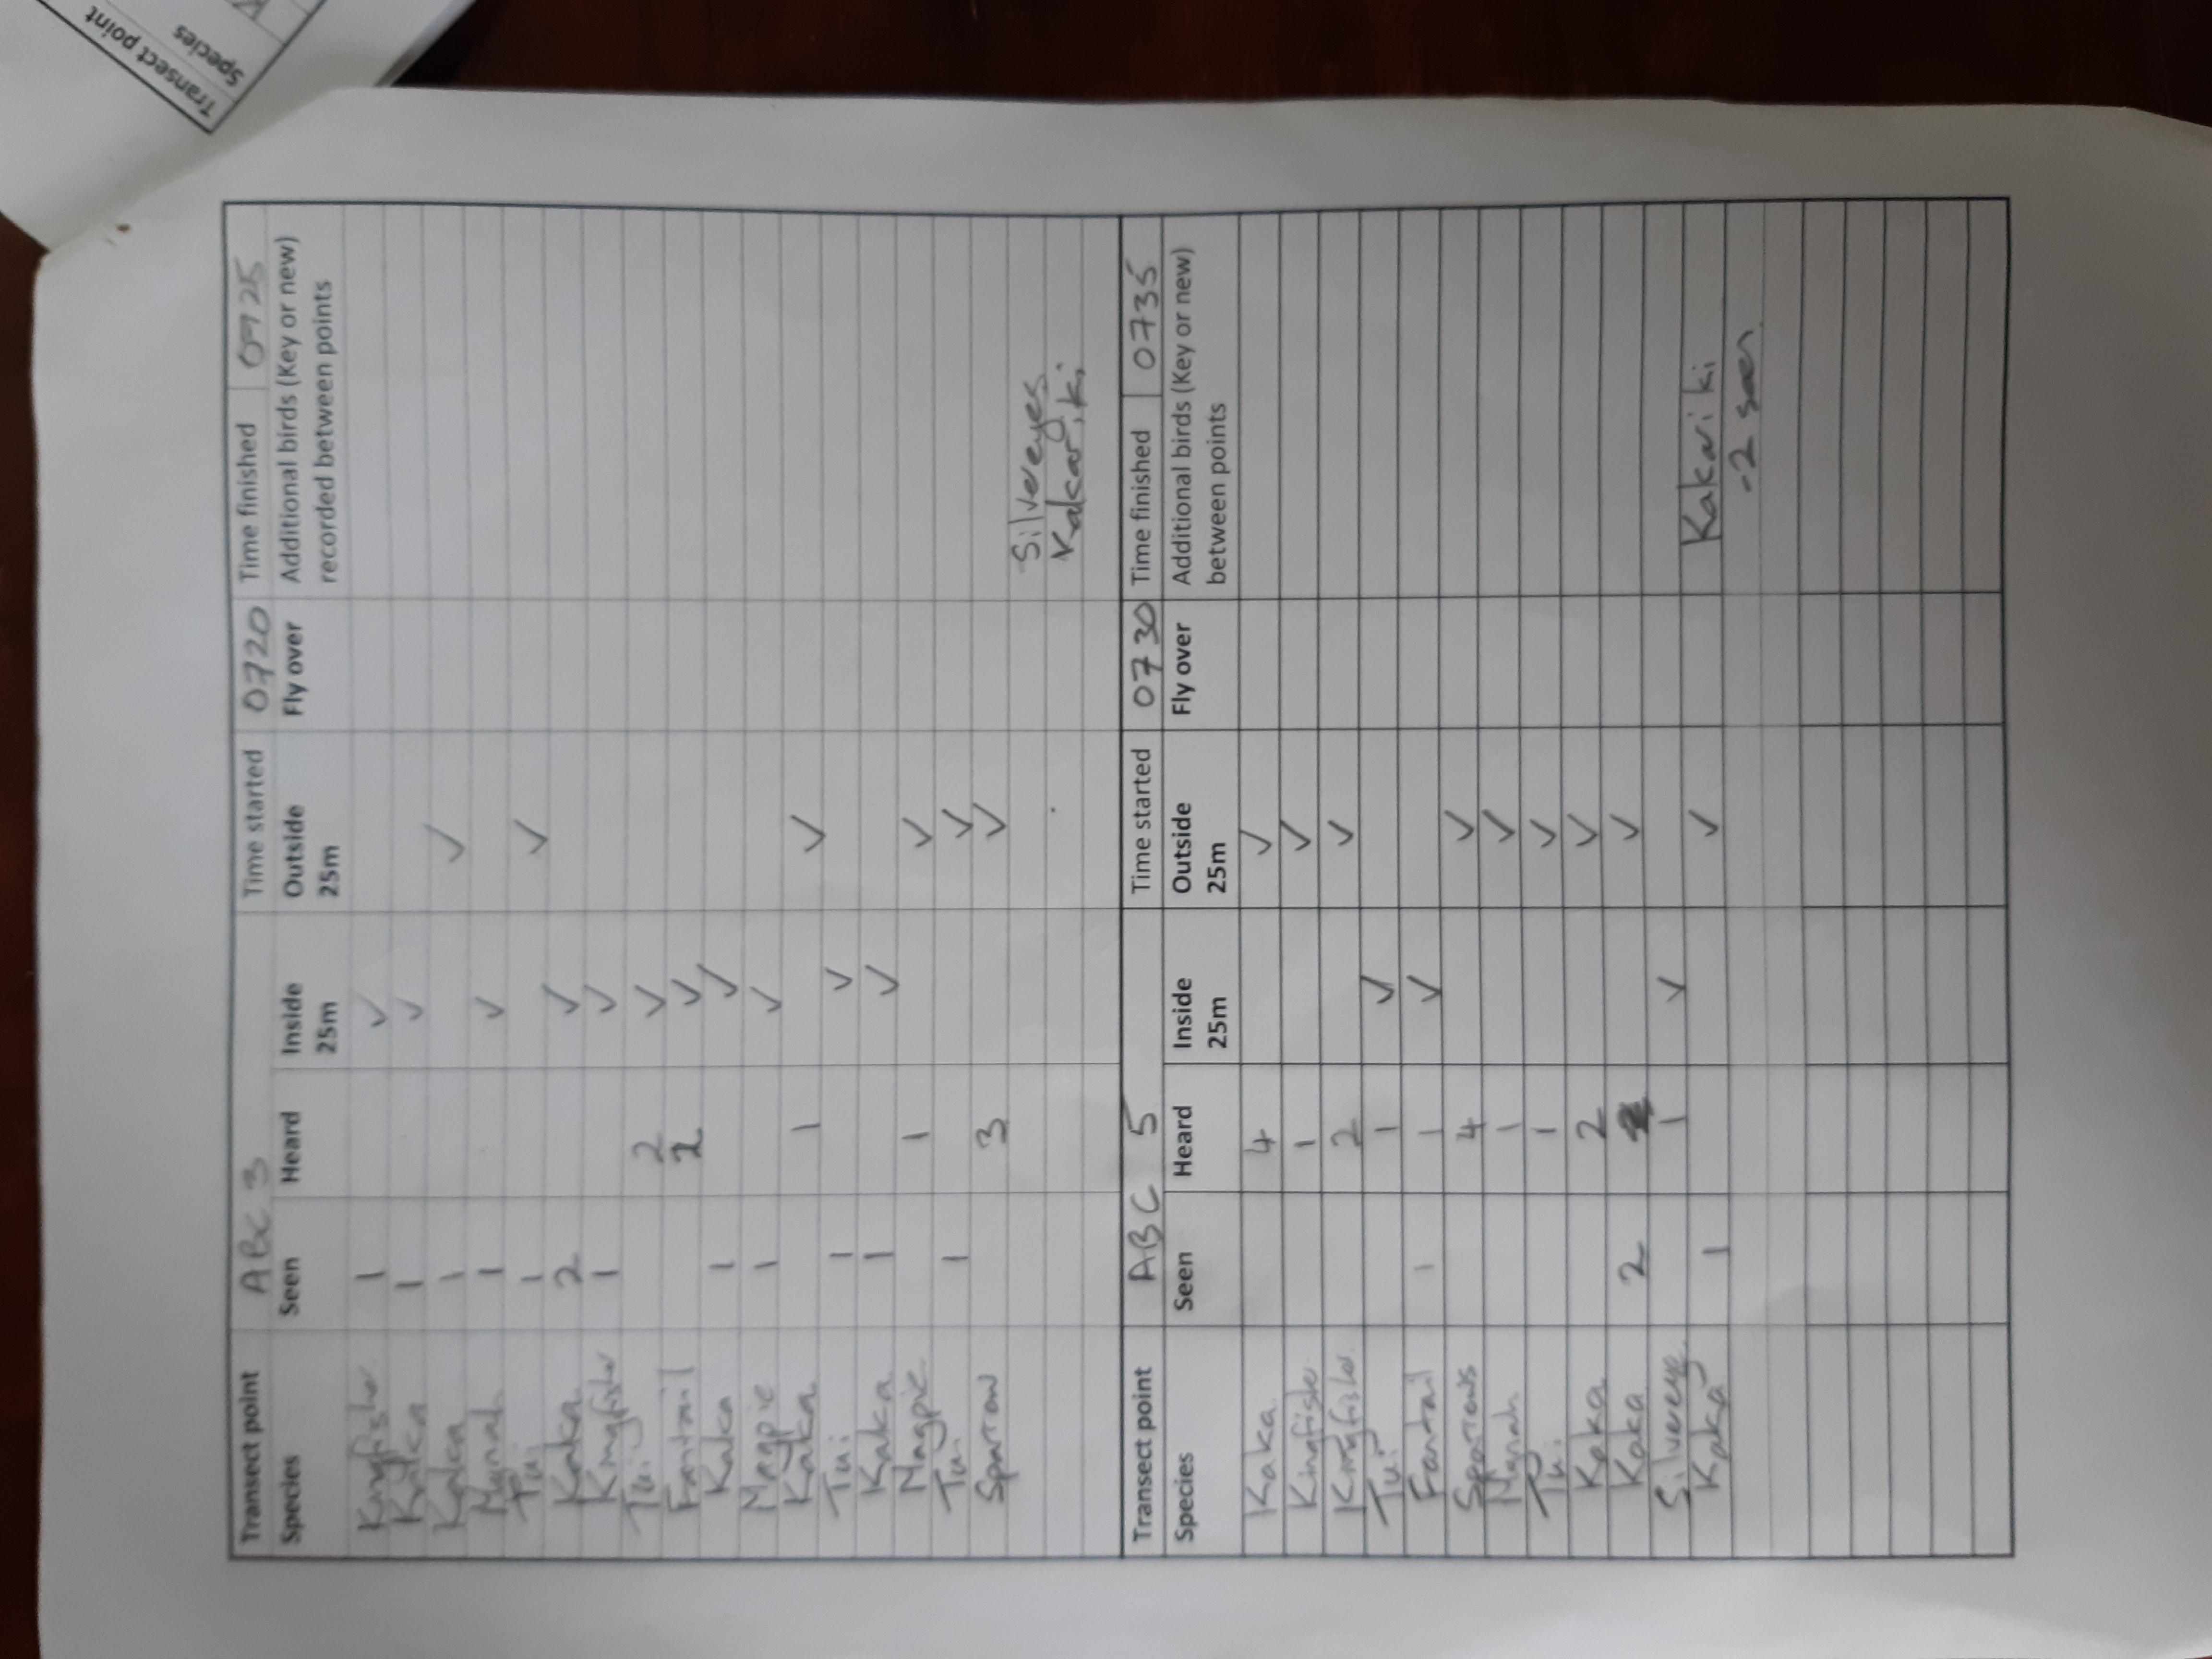 Transect point ABC 3 Time started 0720 Time finished 0725
Species Seen Heard Inside 25m Outside 25m Fly over Additional birds (Key or new) recorded between points
Kingfisher 1 ✓
Kaka 1 ✓
Kaka 1 ✓
Mynah 1 ✓
Tui 1 ✓
Kaka 2 ✓
Kingfisher 1 ✓
Tui 2 ✓
Fantail 2 ✓
Kaka 1 ✓
Magpie 1 ✓
Kaka 1 ✓
Tui 1 ✓
Kaka 1 ✓
Magpie 1 ✓
Tui 1 ✓
Sparrow 3 ✓
Silvereyes
Kakariki
Transect point ABC 5 Time started 0730 Time finished 0735
Species Seen Heard Inside 25m Outside 25m Fly over Additional birds (Key or new) between points
Kaka 4 ✓
Kingfisher 1 ✓
Kingfisher 2 ✓
Tui 1 ✓
Fantail 1 1 ✓
Sparrows 4 ✓
Mynah 1 ✓
Tui 1 ✓
Kaka 2 ✓
Kaka 2 ✓
Silvereye 1 ✓
Kaka 1 ✓ Kakariki
-2 seen
Transect point
Species